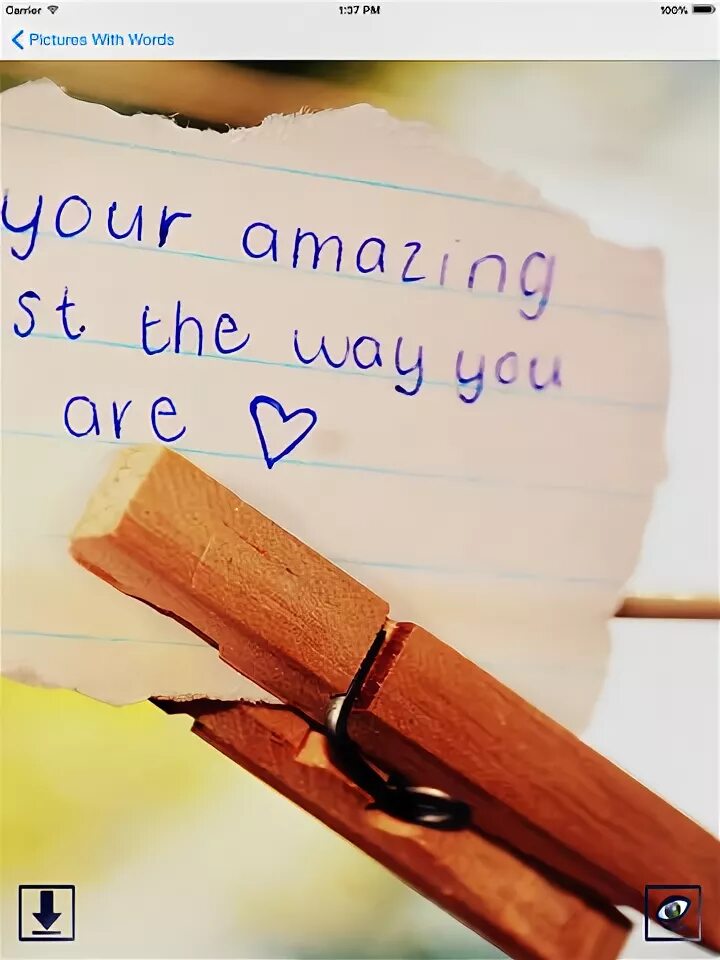 Carrier 1:37 PM 100%
Pictures With Words
your amazing
st. the way you
are ♡